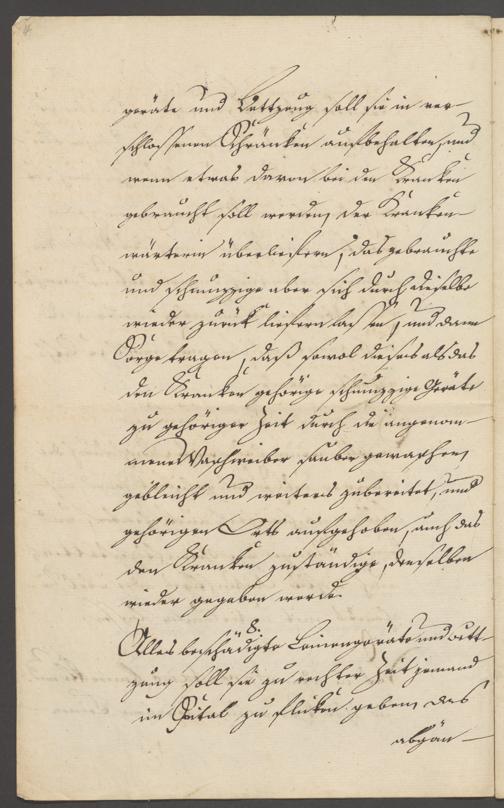 geräte und Bettzeug soll sie in ver-
schlossenen Schränken aufbehalten, und
wenn etwas davon bei den Kranken
gebraucht soll werden, der Kranken-
wärterin überliefern, das gebrauchte
und schmuzzige aber sich durch dieselbe
wieder zurück liefern lassen, und dann
Sorge tragen, daß sowol dieses als das
den Kranken gehörige schmuzzige Geräte
zu gehöriger Zeit durch die angenom-
mene Waschweiber sauber gewaschen,
gebleicht und weiters zubereitet, und
gehörigen Orts aufgehoben, auch das
den Kranken zuständige, denselben
wieder gegeben werde.
8.
Alles beschädigte Leinengeräte und Bett
zeug soll sie zu rechter Zeit jemand
im Spital zu flicken geben, das
abgän-